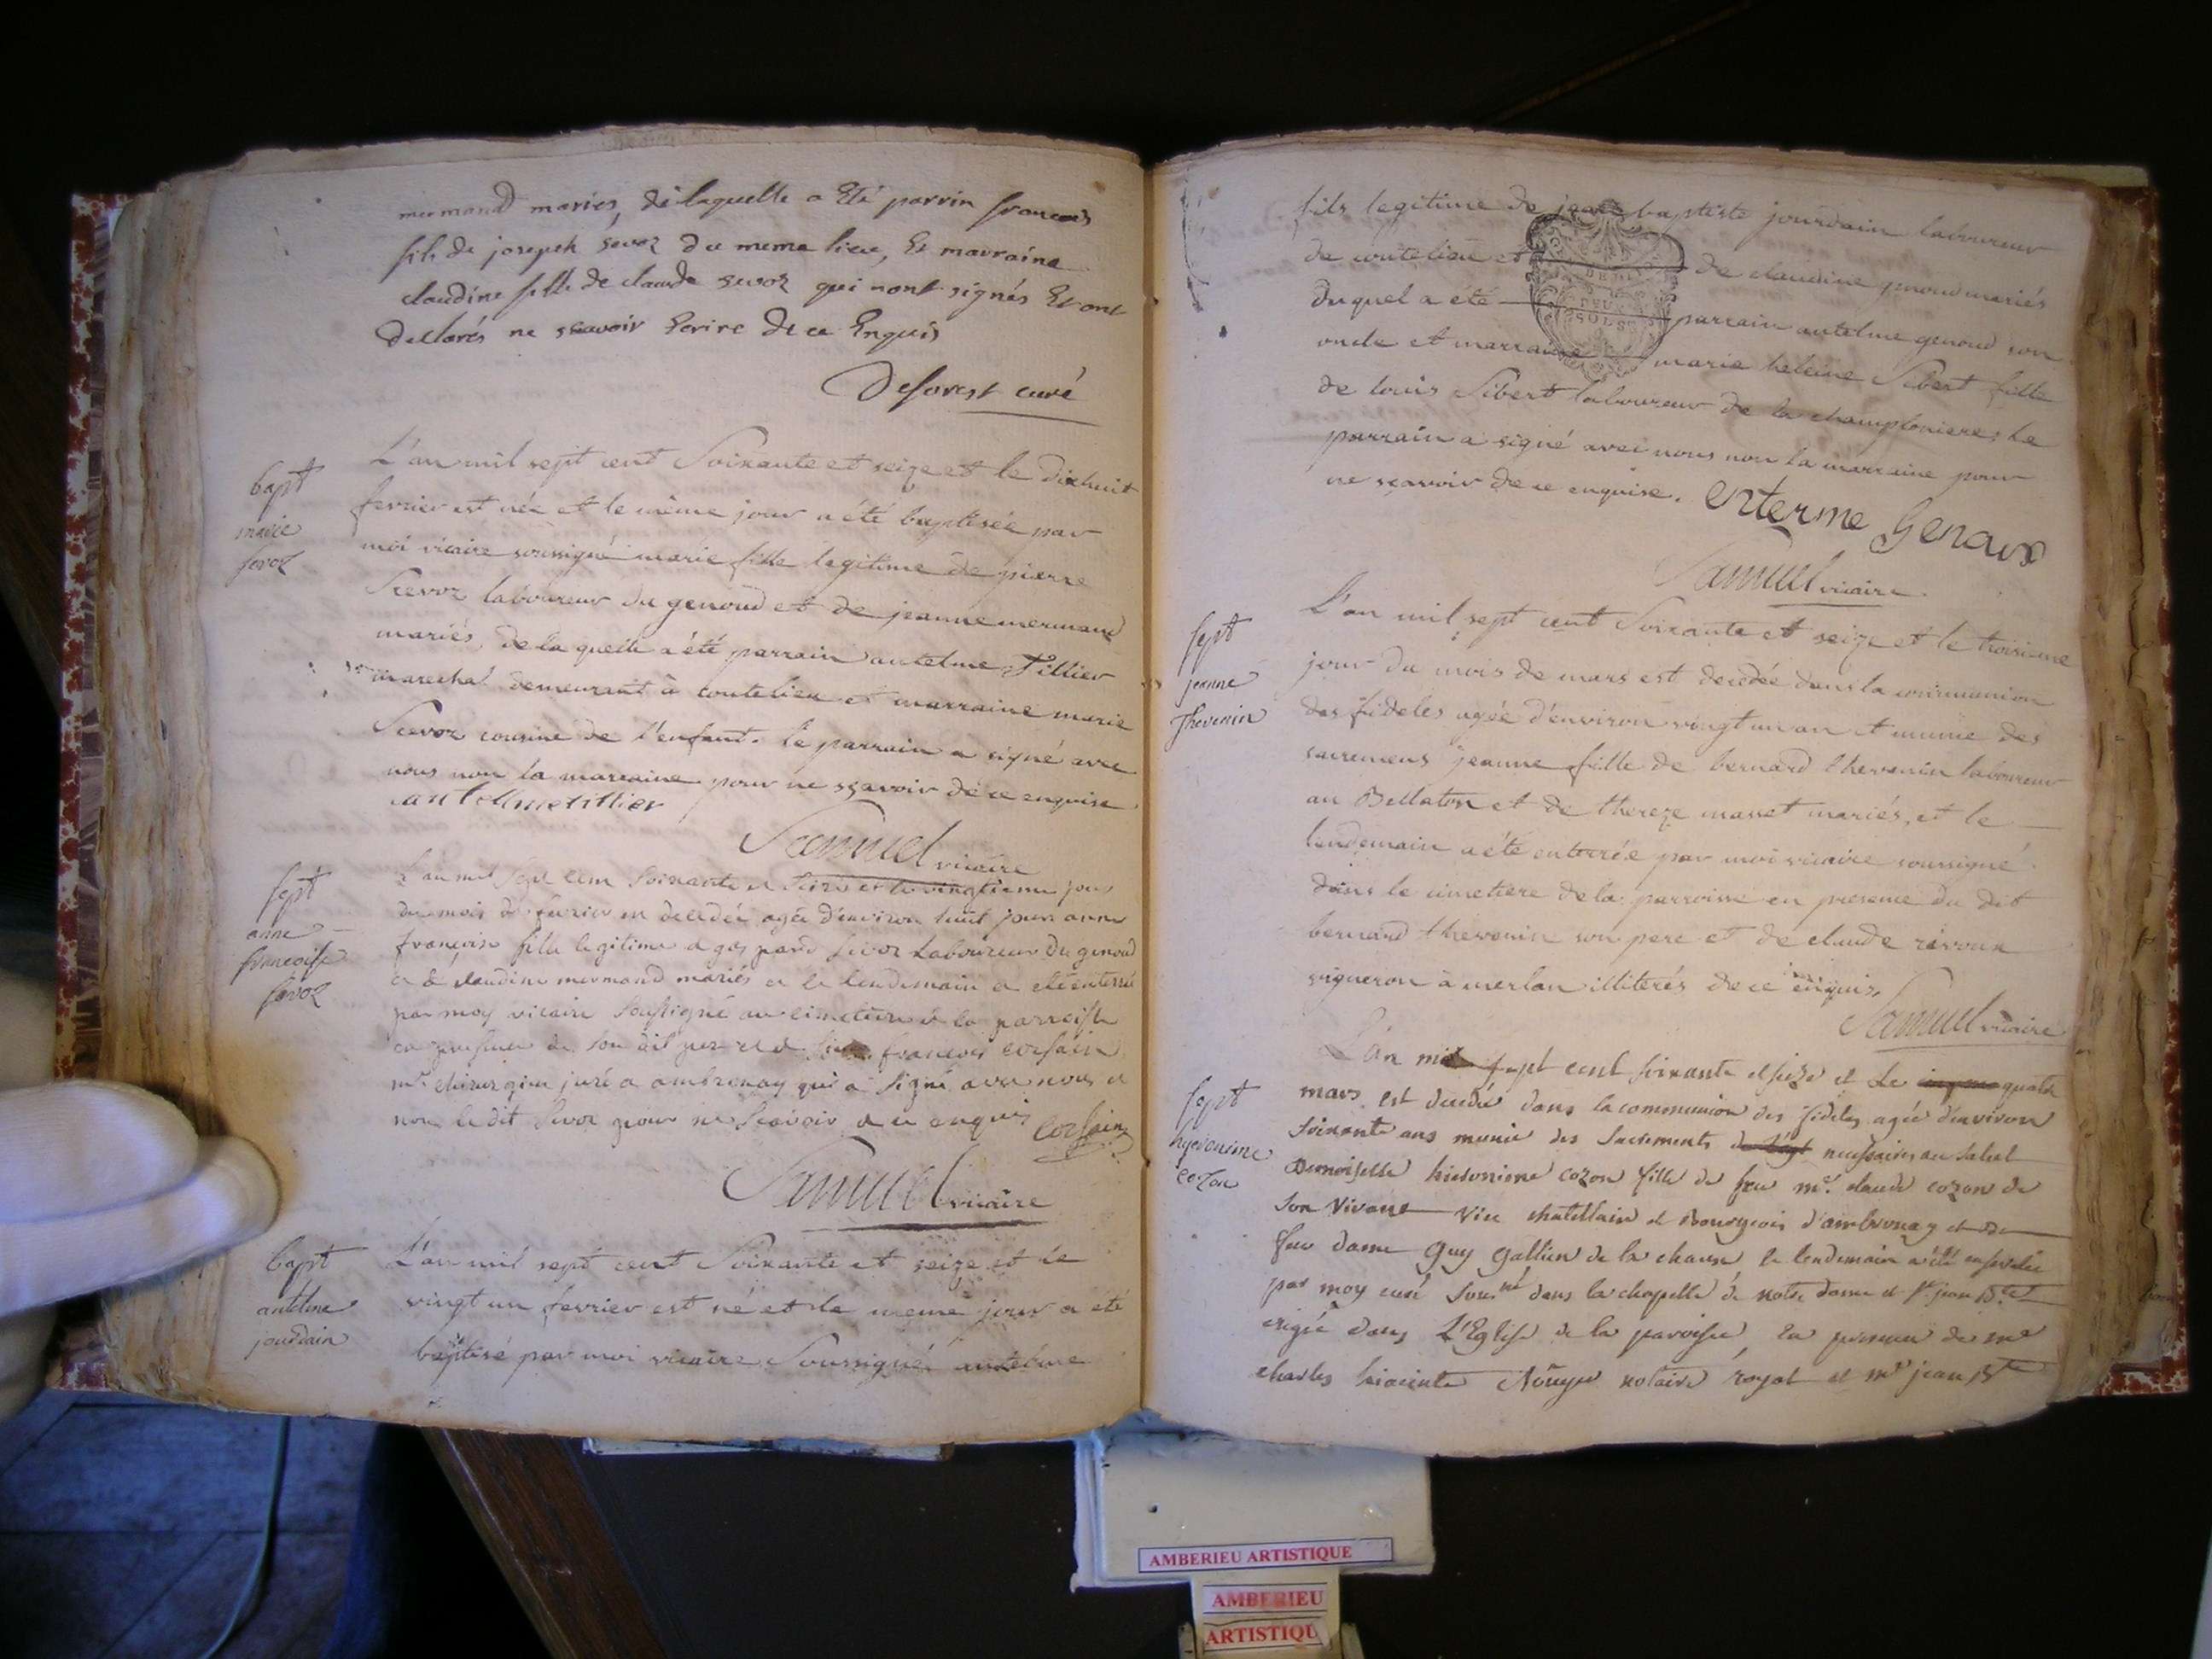 mermand mariés, de laquelle a Eté parrin francois
fils de joseph sevoz du meme lieu, Et marraine
claudine fille de claude sevoz qui nont signés Et ont
declarés ne sçavoir Ecrire De ce Enquis
Deforest curé
bapt
marie
sevoz
L'an mil sept cent Soixante et seize et le dixhuit
fevrier est née et le même jour a été baptisée par
moi vicaire soussigné marie fille legitime de pierre
Scevoz laboureur du genoud et de jeanne mermand
mariés, de la quelle a été parrain antelme Tillier
marechal demeurant à coutelieu et marraine marie
Scevoz cousine de l'enfant. le parrain a signé avec
nous non la marraine pour ne sçavoir de ce enquise
antelme tillier
Samuel vicaire
sept
anne
francoise
sevoz
L'an mil Sept cent Soixante et Seize et le vingtieme jour
du mois de fevrier est decedée agée d'environ huit jours anne
françoise fille legitime de gaspard sevoz Laboureur du genoud
et de claudine mermand mariés et le lendemain a eté enterré
par moy vicaire Soussigné au cimetiere de la parroisse
en presence de son dit pere et de françois corsain
mre chirurgien juré a ambronay qui a signé avec nous et
non le dit Sevoz pour ne Scavoir de ce enquis
corsain
Samuel vicaire
bapt
antelme
jourdain
L'an mil sept cent Soixante et seize et le
vingt un fevrier est né et le meme jour a été
baptisé par moi vicaire Soussigné antelme
fils legitime de jean baptiste jourdain laboureur
de coutelieu et de claudine genoud mariés
duquel a été parrain antelme genoud son
oncle et marraine marie heleine Sibert fille
de louis Sibert laboureur de la championiere; le
parrain a signé avec nous non la marraine pour
ne sçavoir de ce enquise. Enterme Genoux
Samuel vicaire
sept
jeanne
Thevenin
L'an mil sept cent Soixante et seize et le troisieme
jour du mois de mars est decedée dans la communion
des fideles agée d'environ vingt un an et munie des
sacremens jeanne fille de bernard thevenin laboureur
au Bellaton et de thereze masset mariés, et le
lendemain a été enterrée par moi vicaire soussigné
dans le cimetiere de la parroisse en presence du dit
bernard thevenin son pere et de claude
vigneron à merlan illiterés de ce enquis,
Samuel vicaire
sept
hyeronime
cozon
L'an mil sept cent soixante et seize et Le quatre
mars est decedée dans la communion des fideles agée d'environ
soixante ans munie des Sacrements necessaires au Salut
Demoiselle hieronime cozon fille de feu me. claude cozon de
Son Vivant Vice chatellain et Bourgeois d'ambronay et de
feue dame Guy Gallien de la chaux le lendemain a été ensevelie
par moy curé Sousné dans la chapelle de notre dame et st jean Bte
erigée dans L'Eglise de la paroisse, en presence de me
charles hiacinte notaire royal et me jean Bte
AMBERIEU ARTISTIQUE
AMBERIEU
ARTISTIQU